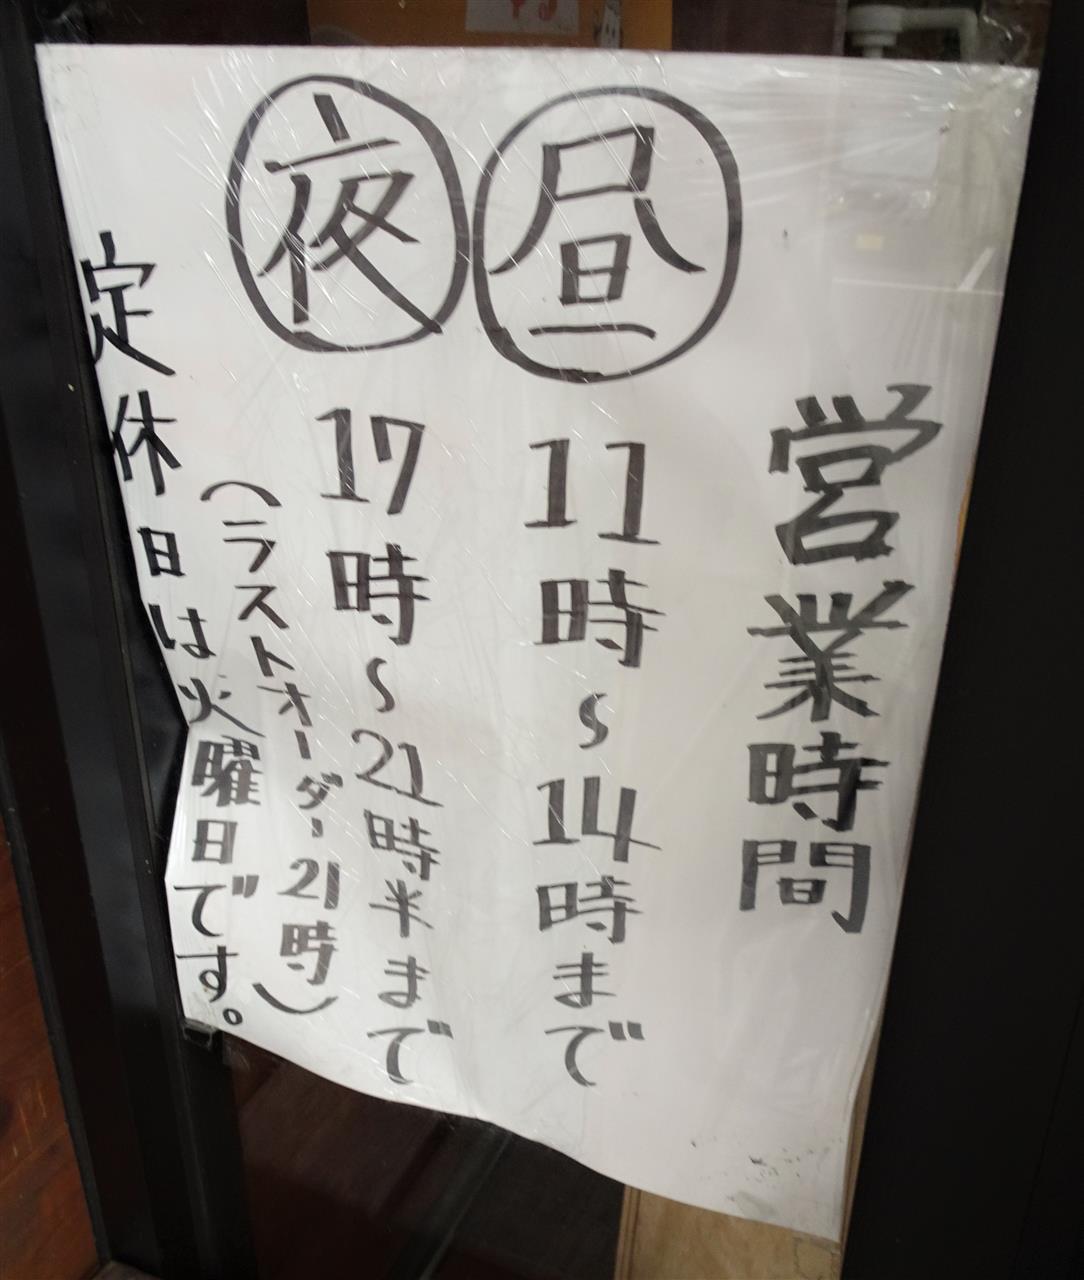 営業時間
昼 11時~14時まで
夜 17時~21時半まで
(ラストオーダー21時)
定休日は火曜日です。